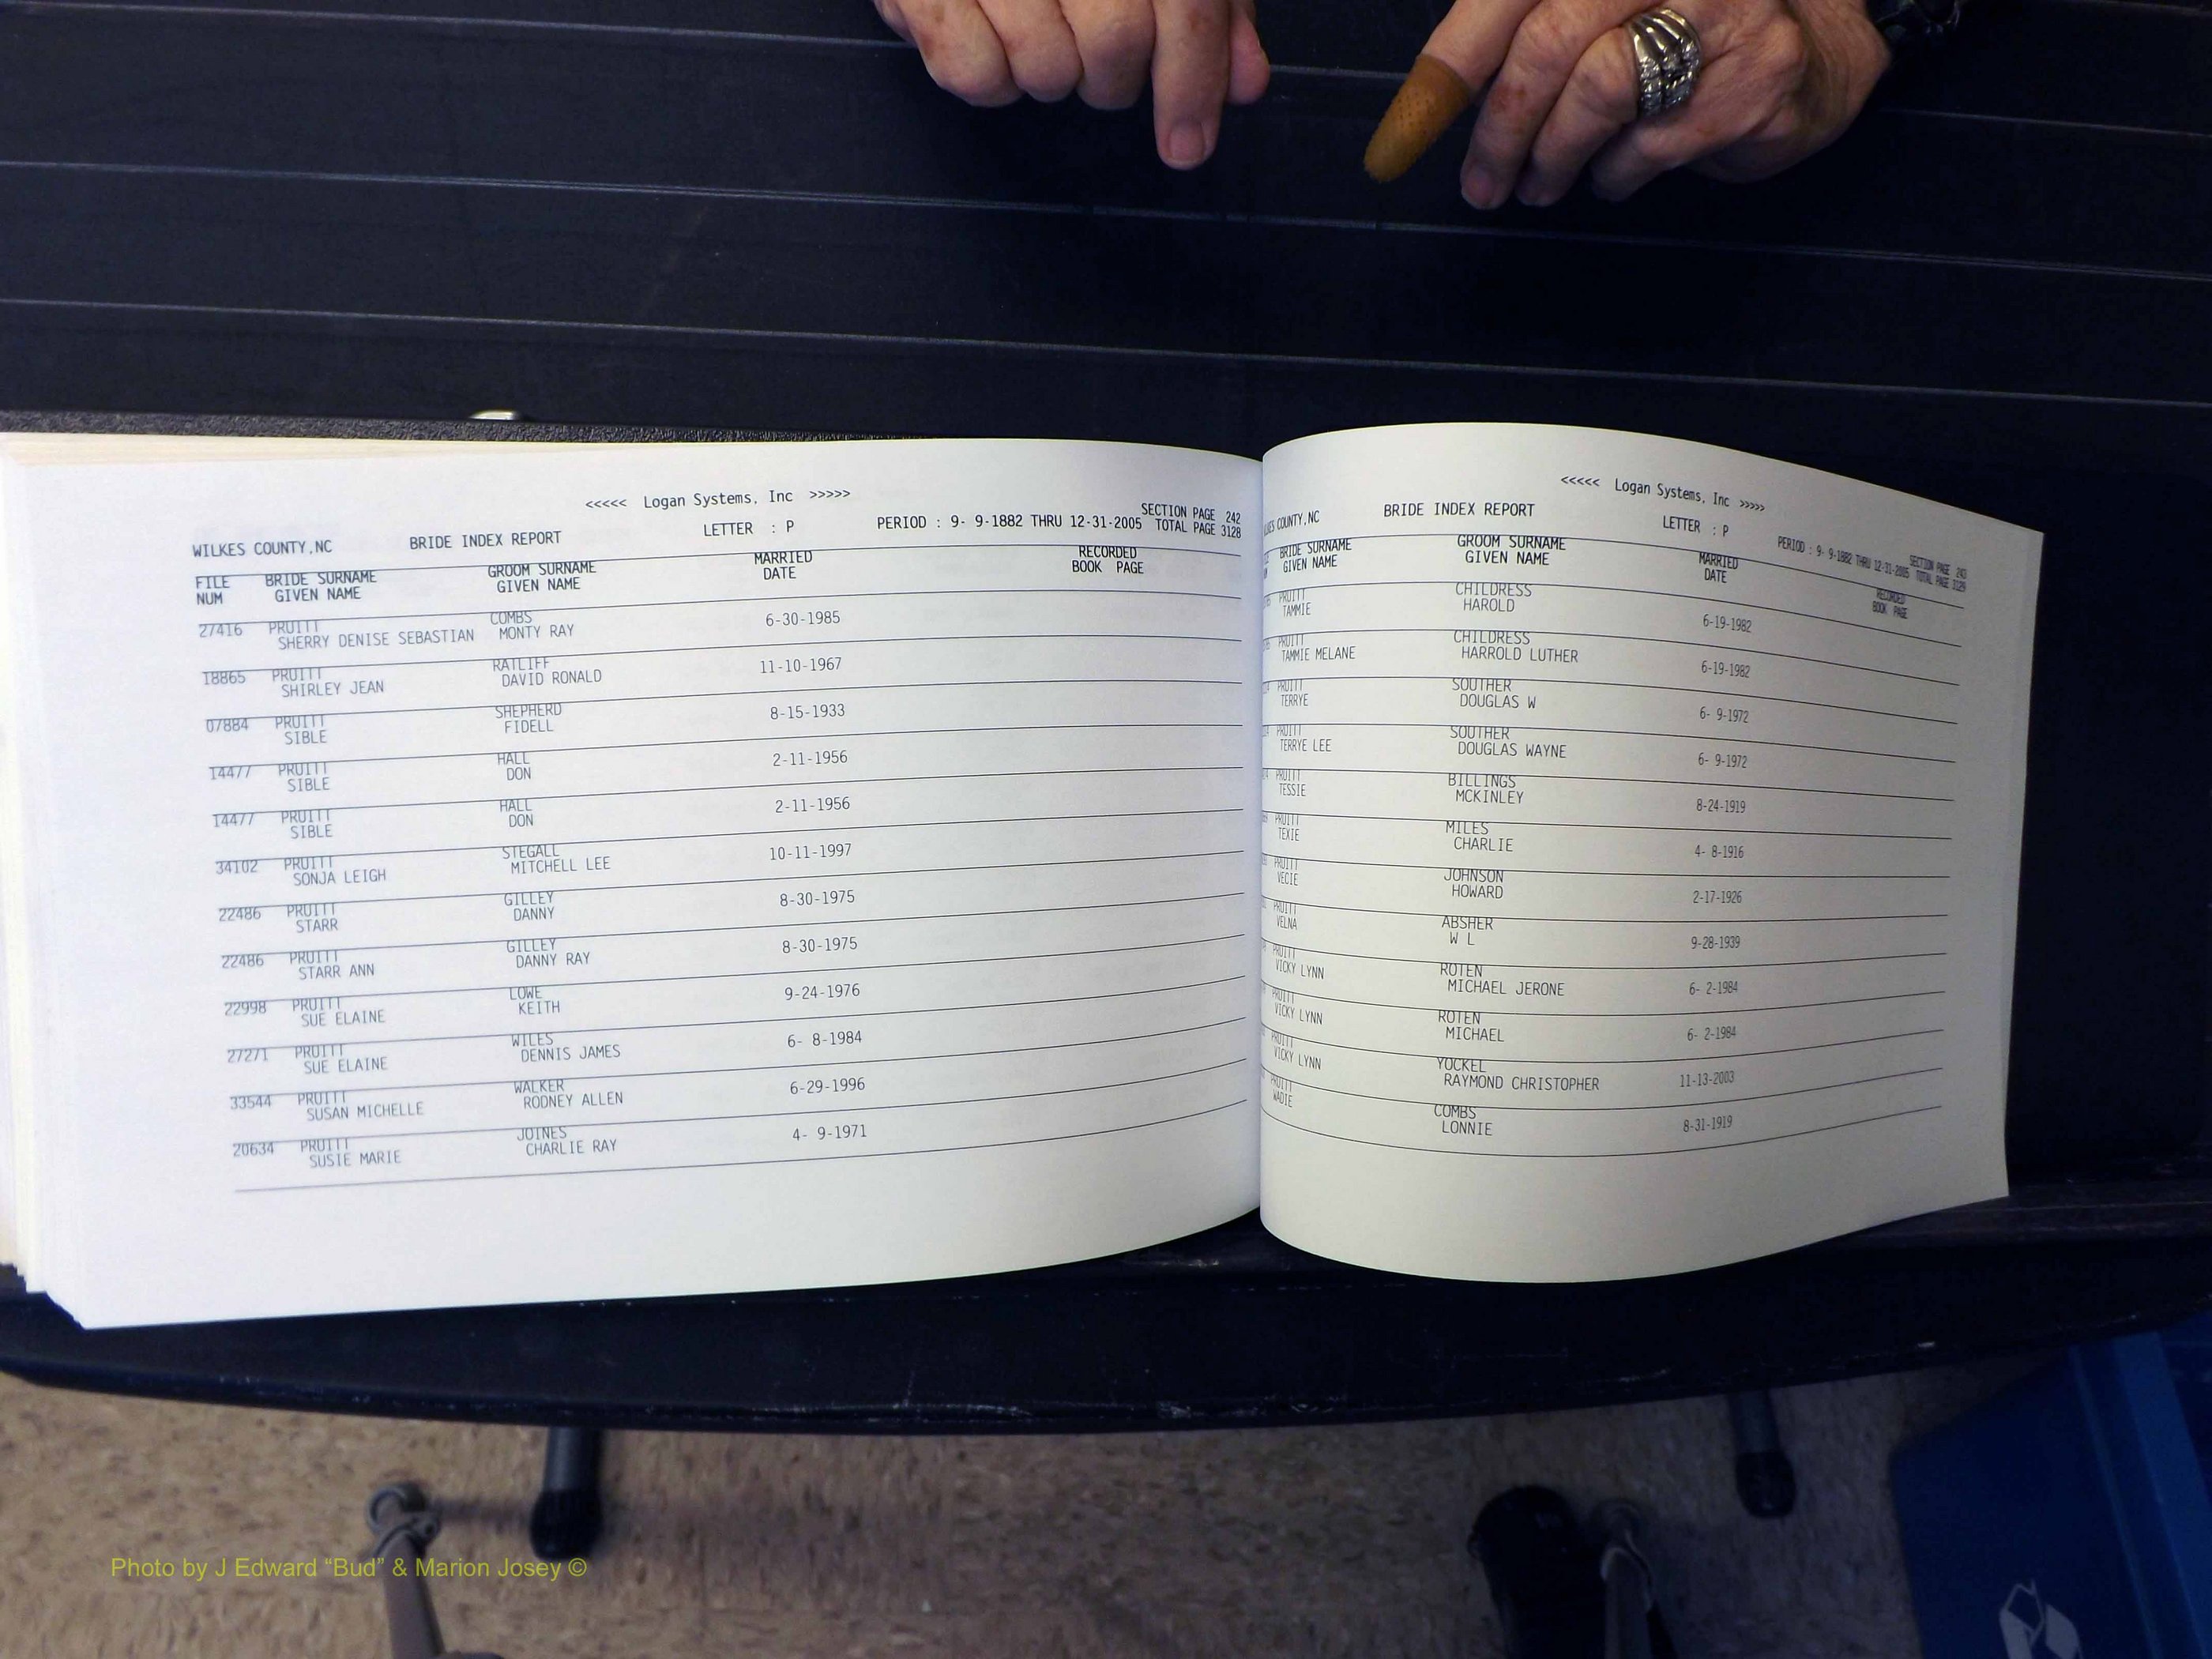 <<<<< Logan Systems, Inc >>>>>
WILKES COUNTY,NC BRIDE INDEX REPORT LETTER : P PERIOD : 9- 9-1882 THRU 12-31-2005 SECTION PAGE 242
TOTAL PAGE 3128
FILE BRIDE SURNAME GROOM SURNAME MARRIED RECORDED
NUM GIVEN NAME GIVEN NAME DATE BOOK PAGE
27416 PRUITT COMBS 6-30-1985
SHERRY DENISE SEBASTIAN MONTY RAY
18865 PRUITT RATLIFF 11-10-1967
SHIRLEY JEAN DAVID RONALD
07884 PRUITT SHEPHERD 8-15-1933
SIBLE FIDELL
14477 PRUITT HALL 2-11-1956
SIBLE DON
14477 PRUITT HALL 2-11-1956
SIBLE DON
34102 PRUITT STEGALL 10-11-1997
SONJA LEIGH MITCHELL LEE
22486 PRUITT GILLEY 8-30-1975
STARR DANNY
22486 PRUITT GILLEY 8-30-1975
STARR ANN DANNY RAY
22998 PRUITT LOWE 9-24-1976
SUE ELAINE KEITH
27271 PRUITT WILES 6- 8-1984
SUE ELAINE DENNIS JAMES
33544 PRUITT WALKER 6-29-1996
SUSAN MICHELLE RODNEY ALLEN
20634 PRUITT JOINES 4- 9-1971
SUSIE MARIE CHARLIE RAY
<<<<< Logan Systems, Inc >>>>>
COUNTY,NC BRIDE INDEX REPORT LETTER : P PERIOD : 9- 9-1882 THRU 12-31-2005 SECTION PAGE 243
TOTAL PAGE 3129
BRIDE SURNAME GROOM SURNAME MARRIED RECORDED
GIVEN NAME GIVEN NAME DATE BOOK PAGE
PRUITT CHILDRESS 6-19-1982
TAMMIE HAROLD
PRUITT CHILDRESS 6-19-1982
TAMMIE MELANE HARROLD LUTHER
PRUITT SOUTHER 6- 9-1972
TERRYE DOUGLAS W
PRUITT SOUTHER 6- 9-1972
TERRYE LEE DOUGLAS WAYNE
PRUITT BILLINGS 8-24-1919
TESSIE MCKINLEY
PRUITT MILES 4- 8-1916
TEXIE CHARLIE
PRUITT JOHNSON 2-17-1926
VECIE HOWARD
PRUITT ABSHER 9-28-1939
VELNA W L
PRUITT ROTEN 6- 2-1984
VICKY LYNN MICHAEL JERONE
PRUITT ROTEN 6- 2-1984
VICKY LYNN MICHAEL
PRUITT YOCKEL 11-13-2003
VICKY LYNN RAYMOND CHRISTOPHER
PRUITT COMBS 8-31-1919
WADIE LONNIE
Photo by J Edward “Bud” & Marion Josey ©